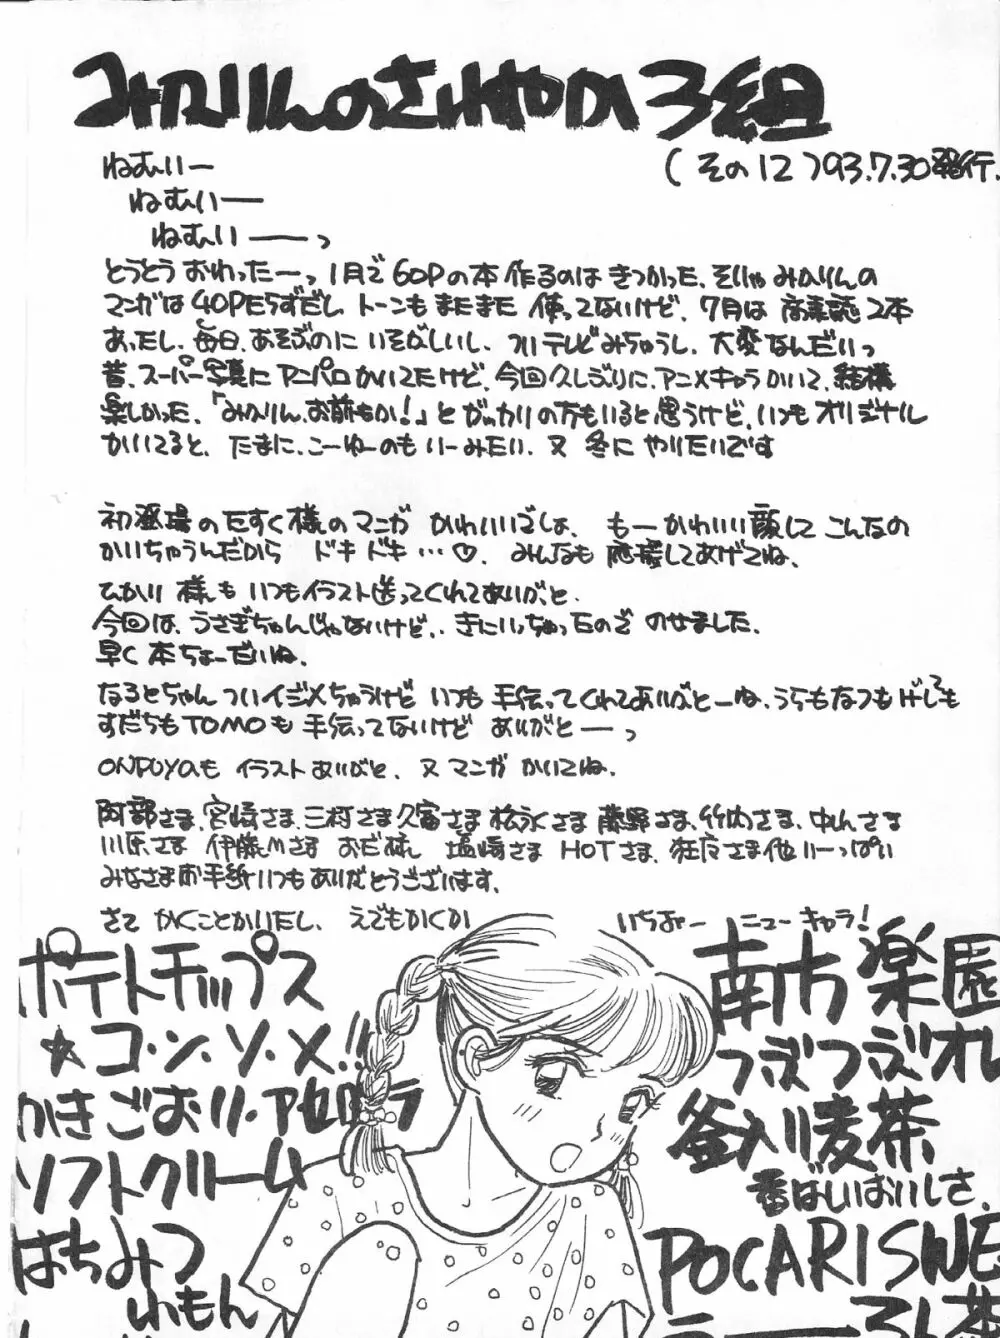 みかりんのさわやか3組
(その12)93.7.30発行.
ねむいー
ねむいー
ねむいーーっ
とうとうおわったーっ 1月で60Pの本作るのはきつかった、そりゃみかりんの
マンガは40Pたらずだし トーンもまたまた使ってないけど、7月は 2本
あったし、毎日、あそぶのにいそがしいし、ついテレビみちゃうし、大変なんだいっ
昔、スーパー写真にアニパロかいてたけど、今回久しぶりに、アニメキャラかいて、結構
楽しかった、「みかりん、お前もか!」とがっかりの方もいると思うけど、いつもオリジナル
かいてると、たまに、こーゆーのもいーみたい、又 冬に やりたいです
初登場のたすく様のマンガ かわいいでしょ、 もーかわいい顔して こんなの
かいちゃうんだから ドキドキ…♡、 みんなも 応援してあげてね、
ひかり様も いつもイラスト送ってくれてありがと、
今回は、うさぎちゃんじゃないけど、、きにいっちゃったのでのせました、
早く本ちょーだいね、
なるとちゃん ついイジメちゃうけど いつも 手伝ってくれてありがとーね、うらもなつもげしても
すだちもTOMOも 手伝ってないけど ありがとーーっ
ONPUYAも イラストありがと、又 マンガ かいてね、
阿部さま、宮崎さま、三村さま久富さま松永さま 藤野さま、竹内さま、中山さま
川原さま 伊藤Mさま おだ様 塩崎さま HOTさま、さま他いーっぱい
みなさまお手紙いつもありがとうございます、
さて かくことかいたし、 えでもかくか
いちおー ニューキャラ!
ポテトチップス
☆コ・ン・ソ・メ!!
かきごおり・アセロラ
ソフトクリーム
はちみつ
れもん
南方楽園
つぶつぶオレ
釜入り麦茶
番ばんおいしさ、
POCARISWE